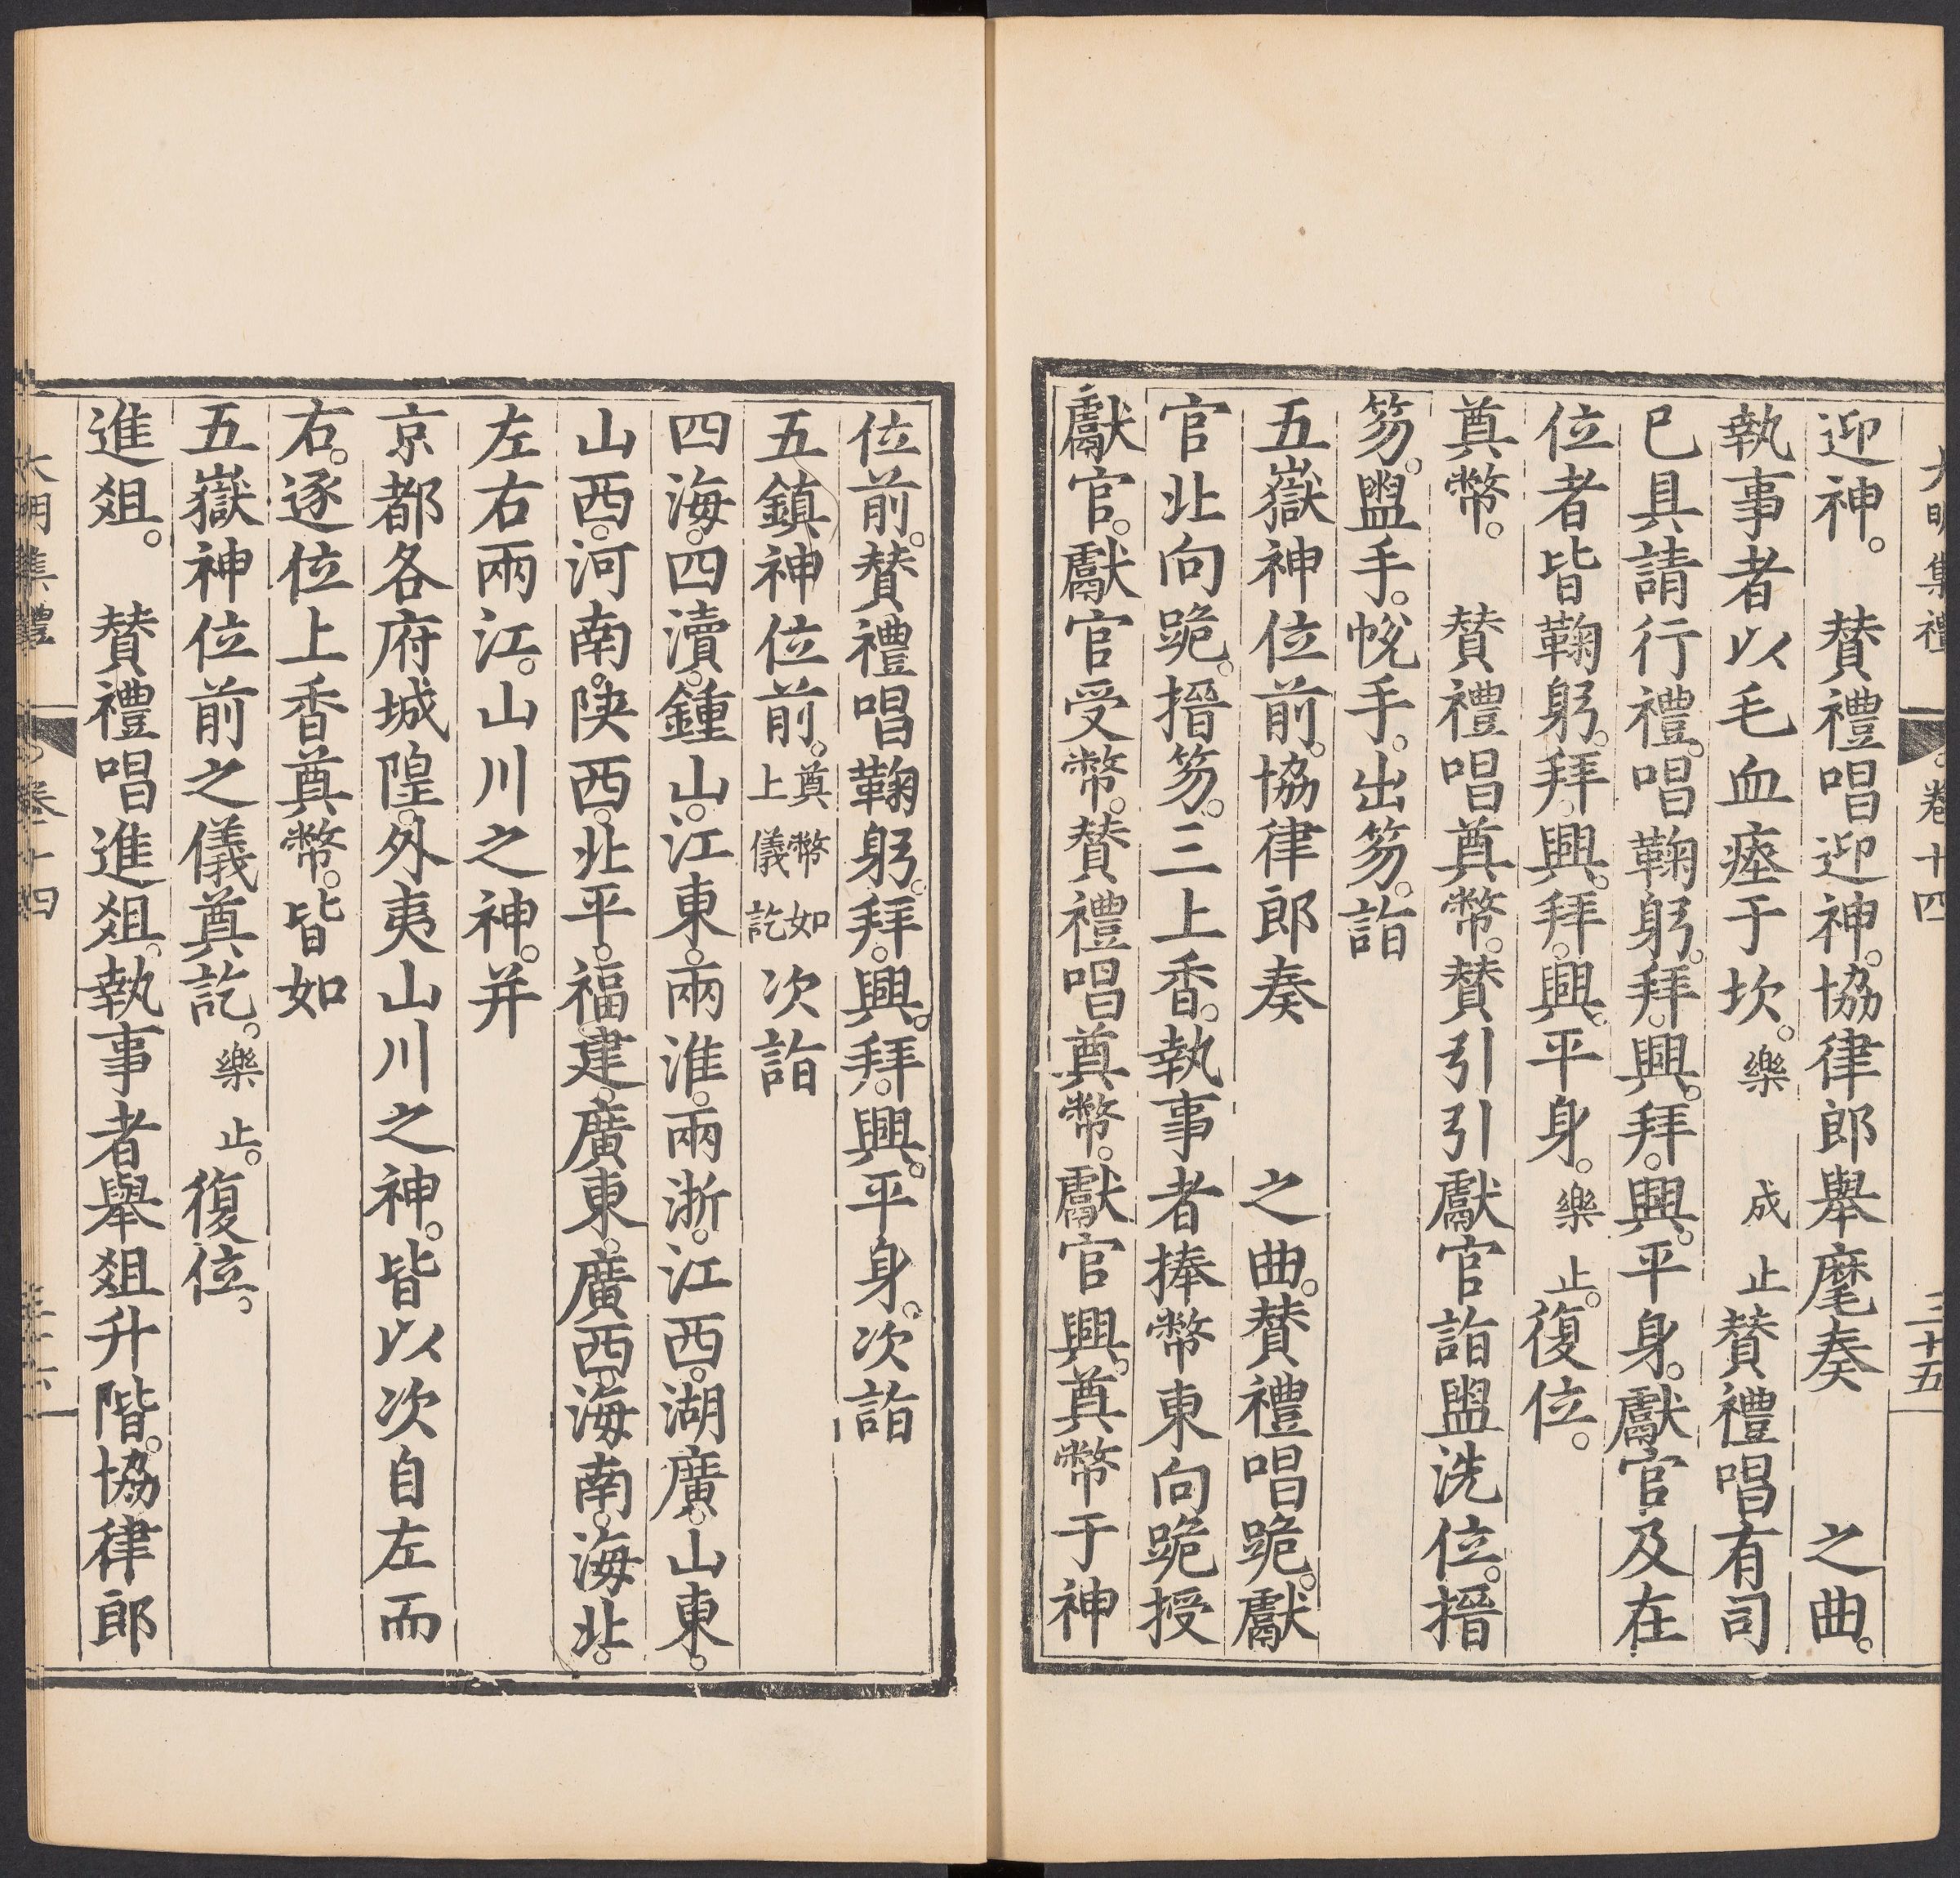 大明集禮 卷十四 三十五
迎神。 贊禮唱迎神。協律郎舉麾奏 之曲。
執事者以毛血瘞于坎。樂 成 止贊禮唱有司
已具請行禮。唱鞠躬。拜。興。拜。興。平身。獻官及在
位者皆鞠躬。拜。興。拜。興。平身。樂止。復位。
奠幣。 贊禮唱奠幣。贊引引獻官詣盥洗位。搢
笏。盥手。帨手。出笏。詣
五嶽神位前。協律郎奏 之曲。贊禮唱跪。獻
官北向跪。搢笏。三上香。執事者捧幣東向跪授
獻官。獻官受幣。贊禮唱奠幣。獻官興。奠幣于神
位前。贊禮唱鞠躬。拜。興。拜。興。平身。次詣
五鎮神位前。奠幣如上儀訖次詣
四海。四瀆。鍾山。江東。兩淮。兩浙。江西。湖廣。山東。
山西。河南。陝西。北平。福建。廣東。廣西。海南。海北。
左右兩江。山川之神。并
京都各府城隍。外夷山川之神。皆以次自左而
右。逐位上香奠幣。皆如
五嶽神位前之儀奠訖。樂止。復位。
進俎。 贊禮唱進俎。執事者舉俎升階。協律郎
大明集禮 卷十四